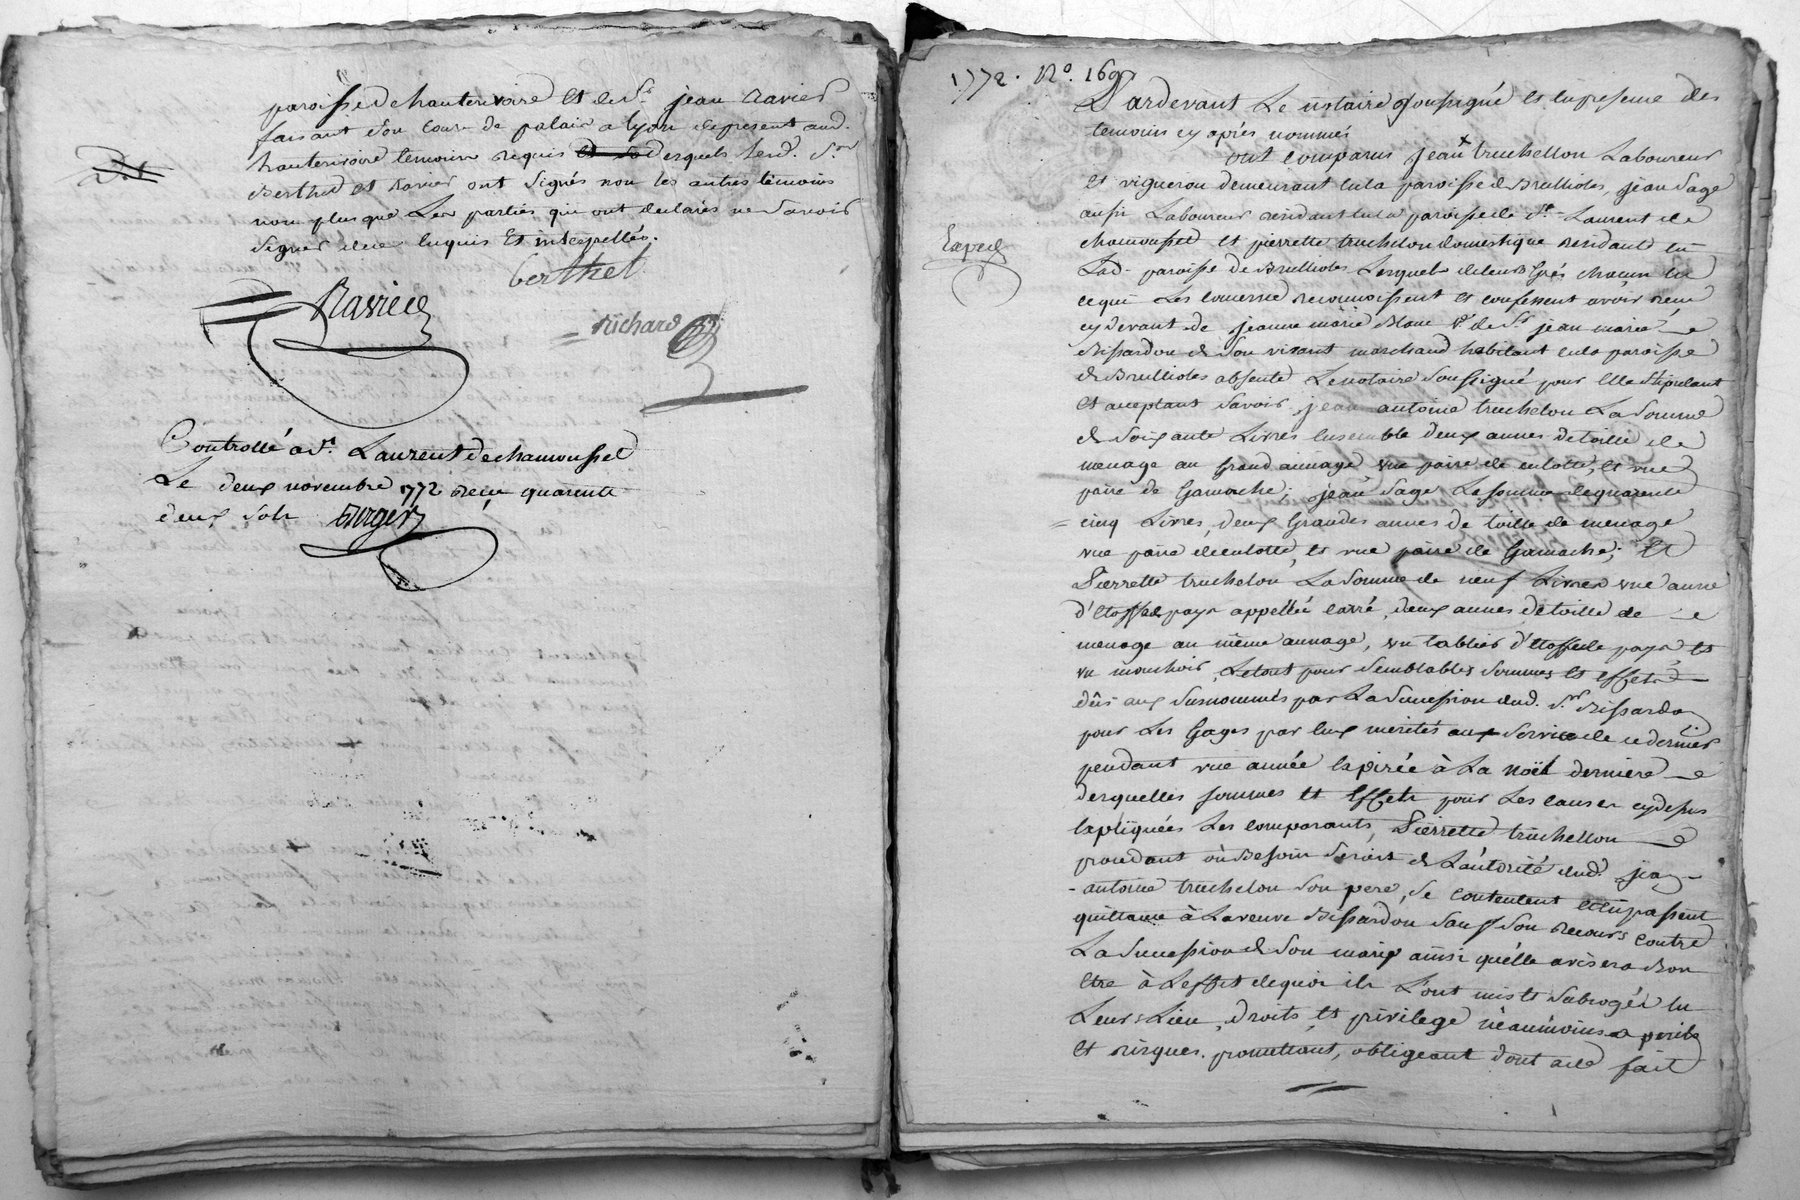 paroisse de hauterivoire et de Sr. jean Ravier
faisant son cour de palais a lyon de present aud.
hauterivoire temoins requis desquels led. Sr.
Berthet et Ravier ont signés non les autres temoins
non plus que Les parties qui ont declarés ne savoir
signer de ce enquis et interpellés.
berthet
Ravier
Richard
Controllé a St. Laurent de chamousset
Le deux novembre 1772 reçu quarente
deux sols
1772. No. 169
Pardevant Le notaire soussigné et en presence des
temoins cy après nommés
ont comparus jean + truchellon Laboureur
et vigneron demeurant en la paroisse de Brullioles, jean Sage
aussi Laboureur residant en la paroisse de St. Laurent de
chamousset et pierrette truchelon domestique residante en
Lad. paroisse de Brullioles Lesquels de leurs Grés chacun en
ce qui Les concerne reconnoissent et confessent avoir reçu
cy devant de jeanne marie Blanc Ve. de Sr jean marie
Bissardon de son vivant marchand habitant en la paroisse
de Brullioles absente Le notaire soussigné pour Elle stipulant
et acceptant savoir jean antoine truchelon La Somme
de Soixante Livres Ensemble deux aunes de toille de
menage au grand aunage une paire de culotte, et une
paire de Gamache; jean Sage La somme de quarente
cinq Livres, deux Grandes aunes de toille de menage
une paire de culotte, et une paire de Gamache; Et
Pierrette truchelon, La Somme de neuf Livres une aune
d'Etoffe de pays appellée carré, deux aunes de toille de
menage au même aunage, un tablier d'Etoffe de pays et
un mouchoir, Le tout pour semblables sommes et effets
dûs aux susnommés par La Succession dud. Sr. Bissardon
pour Les Gages par Eux merités au service de ce dernier
pendant une année Expirée à La noël derniere
desquelles sommes et Effets pour Les causes cy dessus
Expliquées Les comparants, Pierrette truchellon
procedant où Besoin seroit de L'autorité dud. jean
antoine truchelon son pere, se contentent et en passent
quittance à La veuve Bissardon sauf son recours contre
La Succession de son mary ainsi qu'elle avisera Bon
Etre à L'effet de quoi ils L'ont mis et subrogée en
Leurs Lieu, droits, et privilege néaumoins a perils
et risques. promettant, obligeant dont acte fait